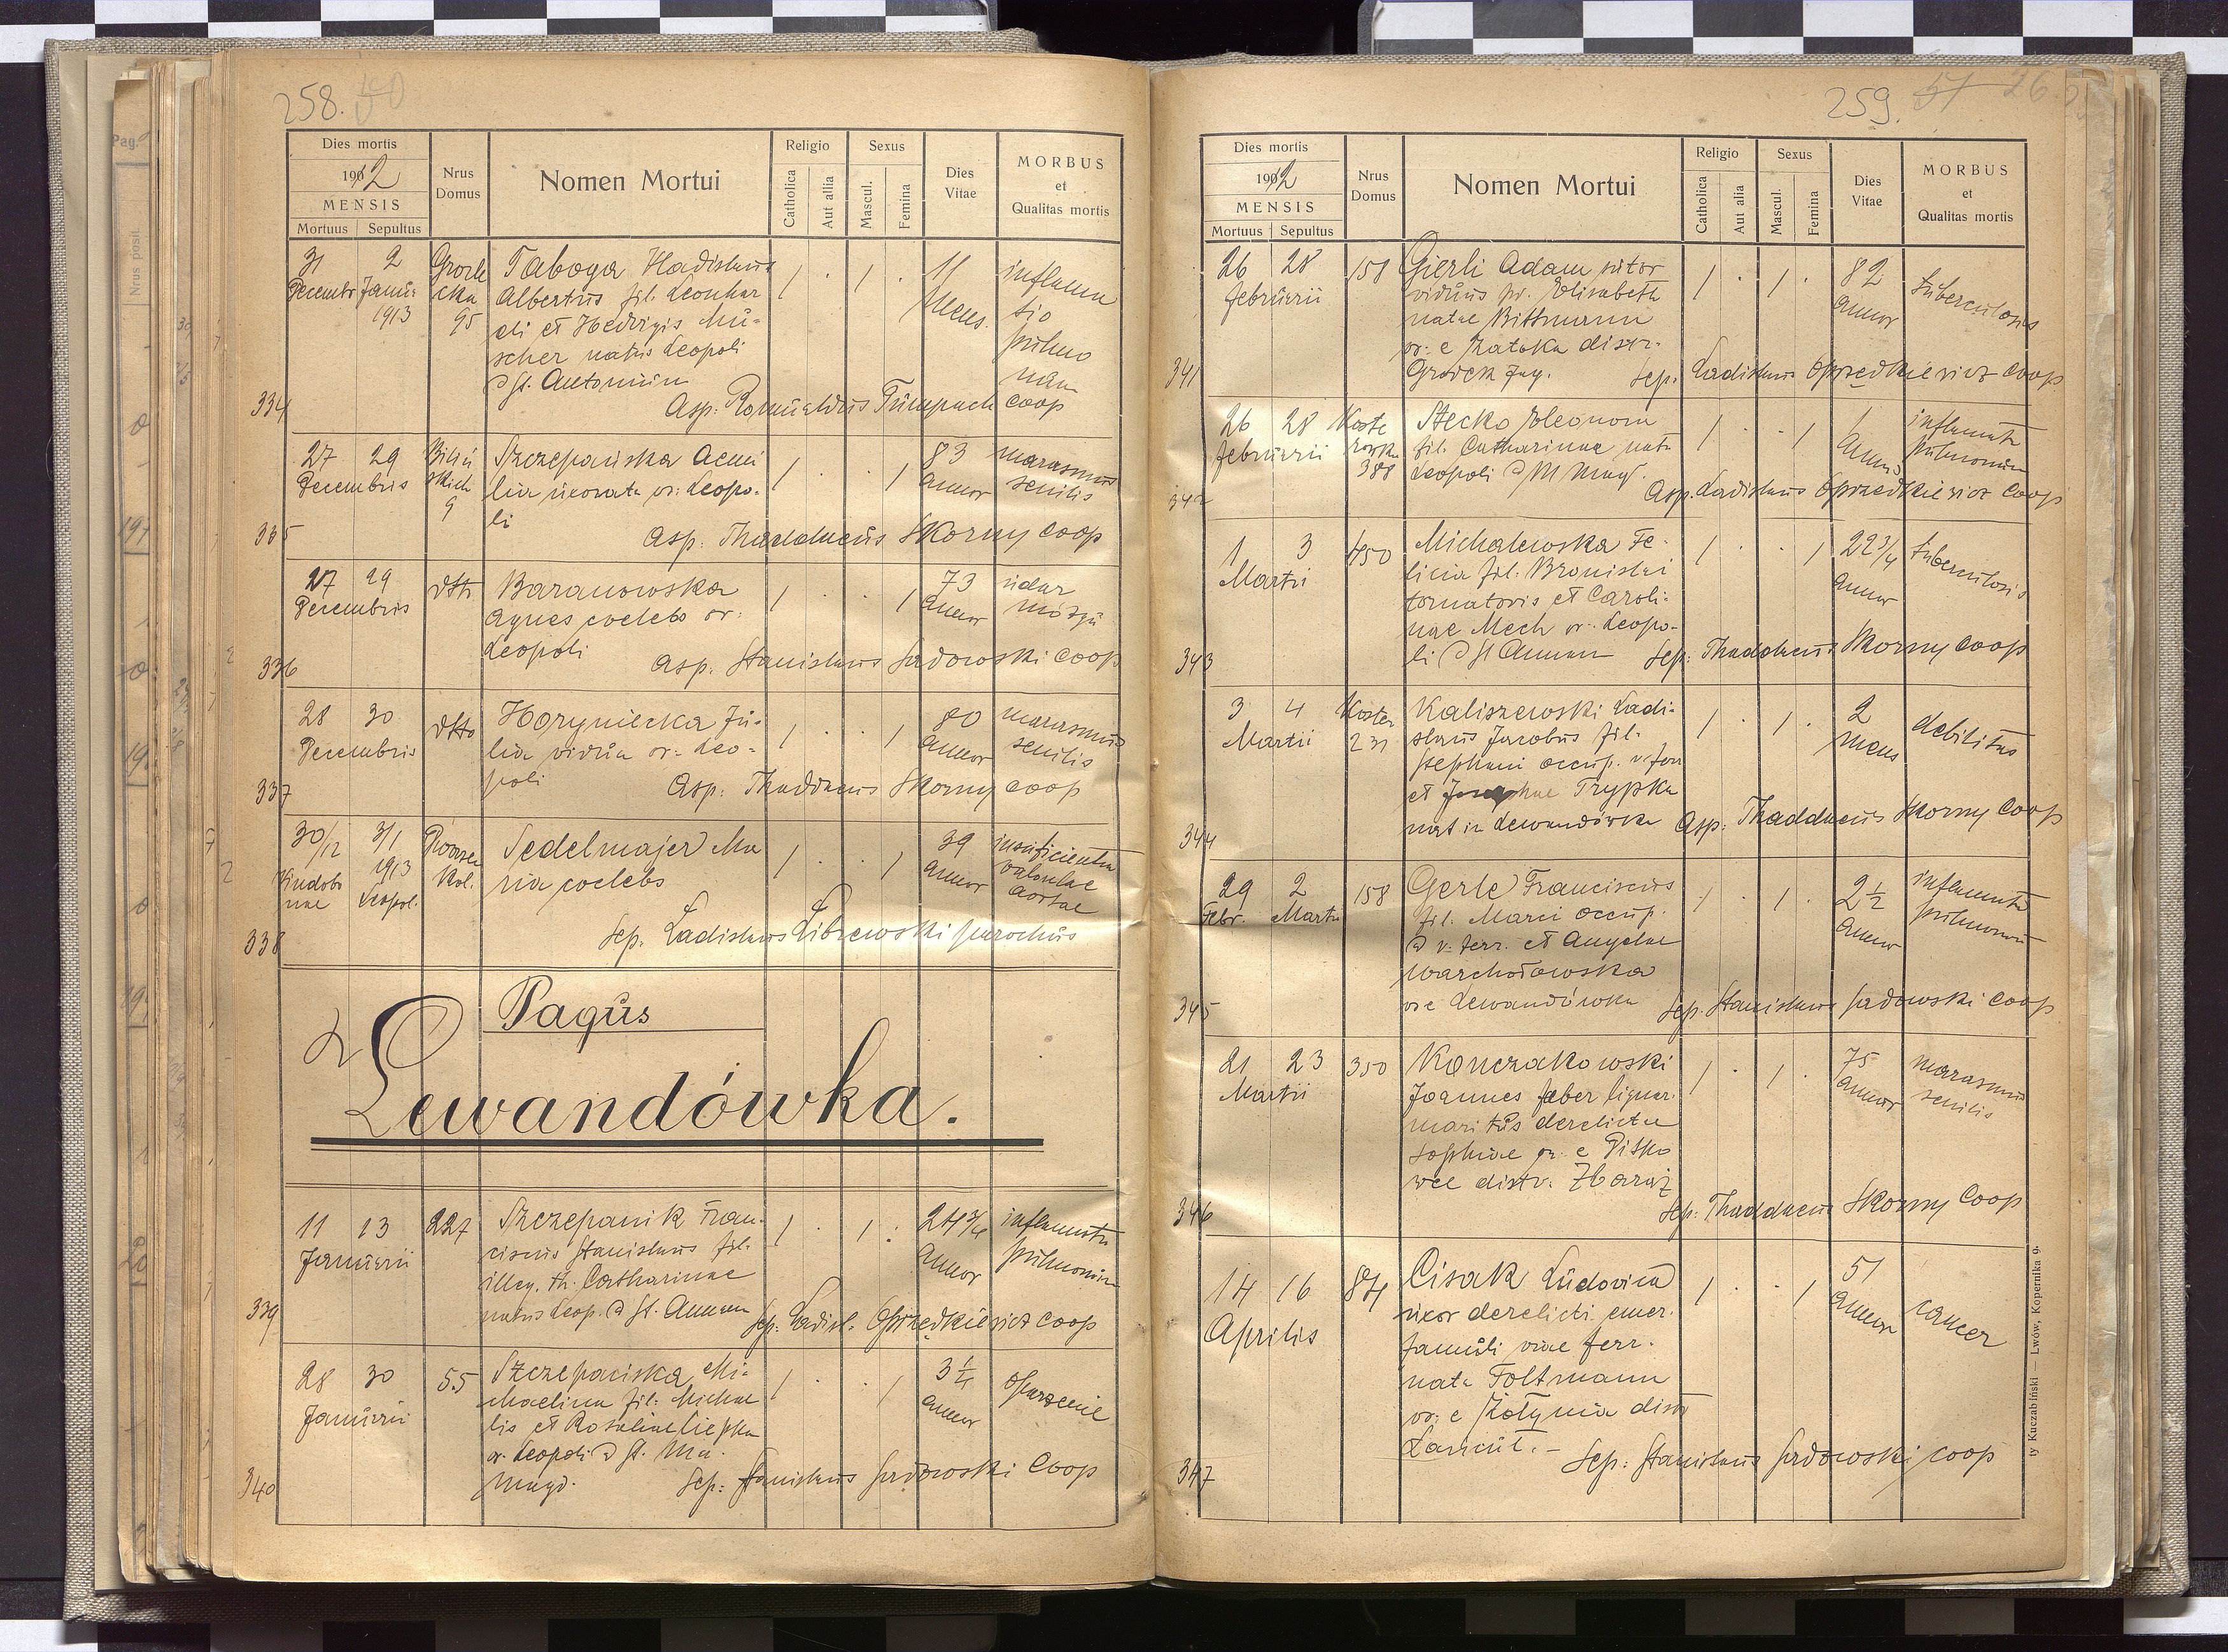 258.
Dies mortis
1912
MENSIS
Mortuus Sepultus
Nrus Domus
Nomen Mortui
Religio
Catholica
Aut allia
Sexus
Mascul.
Femina
Dies Vitae
MORBUS
et
Qualitas mortis
334
31 2
Decembr Januar
1913
95
Taboga Wladislaus
Albertus fil. Leonhar
di et Hedvigis Mü-
scher natus Leopoli
ad St. Antonium
11
Mens.
inflamma
tio
pulmo
num
Asp. Romualdus coop
335
27 29
Decembris
9
Szczepańska Aemi
lia uxorata or: Leopo-
li
83
annor
marasmus
senilis
Asp. Thaddaeus Skorny coop
336
27 29
Decembris
dtto
Baranowska
Agnes coelebs or:
Leopoli
73
annor
udar
mózgu
Asp. Stanislaus Sadowski coop
337
28 30
Decembris
dtto
Horyniecka Ju-
lia vidua or: Leo-
poli
80
annor
marasmus
senilis
Asp: Thaddaeus Skorny coop
338
30/12 3/1
1913
Vindobo
nae
Leopol.
Sedelmajer Ma
ria coelebs
39
annor
insuficientia
valvulae
aortae
Sep. Ladislaus Librewski parochus
Pagus
Lewandówka.
339
11 13
Januarii
227
Szczepanik Fran-
ciscus Stanislaus fil.
illeg. th. Catharinae
natus Leop. ad St. Annam
24 3/4
annor
inflammatio
pulmonum
Sep: Ladisl. Oprzędkiewicz coop
340
28 30
Januarii
55
Szczepańska Mi-
chaelina fil: Michae
lis et Rosaliae Ciepka
or. Leopoli ad St. Ma.
Magd.
3 1/4
annor
oparzenie
Sep: Stanislaus Sadowski coop
259.
Dies mortis
1912
MENSIS
Mortuus Sepultus
Nrus Domus
Nomen Mortui
Religio
Catholica
Aut alia
Sexus
Mascul.
Femina
Dies Vitae
MORBUS
et
Qualitas mortis
341
26 28
februarii
158
Gierli Adam sutor
viduus pr. Elisabeth
natae Bittmann
or: e Zatoka distr.
Gródek Jag.
82
annor
tuberculosis
Sep. Ladislaus Oprzędkiewicz coop
342
26 28
februarii
388
Stecko Eleonora
fil. Catharinae nata
Leopoli ad M Magd.
1
annus
inflammatio
pulmonum
Asp. Ladislaus Oprzędkiewicz coop
343
1 3
Martii
450
Michalewska Fe-
licia fil. Bronislai
tornatoris et Caroli-
nae Mech or. Leopo-
li ad St Annam
22 3/4
annor
tuberculosis
Sep: Thaddaeus Skorny coop
344
3 4
Martii
231
Kaliszewski Ladi-
slaus Jacobus fil.
Stephani occup. v. ferr
et Josephae Trypka
nat in Lewandówka
2
mens
debilitas
Asp: Thaddaeus Skorny coop
345
29 2
Febr. Martii
158
Gerle Franciscus
fil. Marci occup.
ad v. ferr. et Angelae
Warchołowska
or e Lewandówka
2 1/2
annor
inflammatio
pulmonum
Sep. Stanislaus Sadowski coop
346
21 23
Martii
350
Konczakowski
Joannes faber lignar.
maritus derelictae
Sophiae or. e Pisko
wce distr. Zbaraż
75
annor
marasmus
senilis
Sep: Thaddaeus Skorny coop
347
14 16
Aprilis
84
Cisak Ludovica
uxor derelicti emer.
famuli viae ferr.
nata Foltmann
or: e Żołynia distr
Łańcut. -
51
annor
cancer
Sep: Stanislaus Sadowski coop
Kuczabiński — Lwów, Kopernika 9.